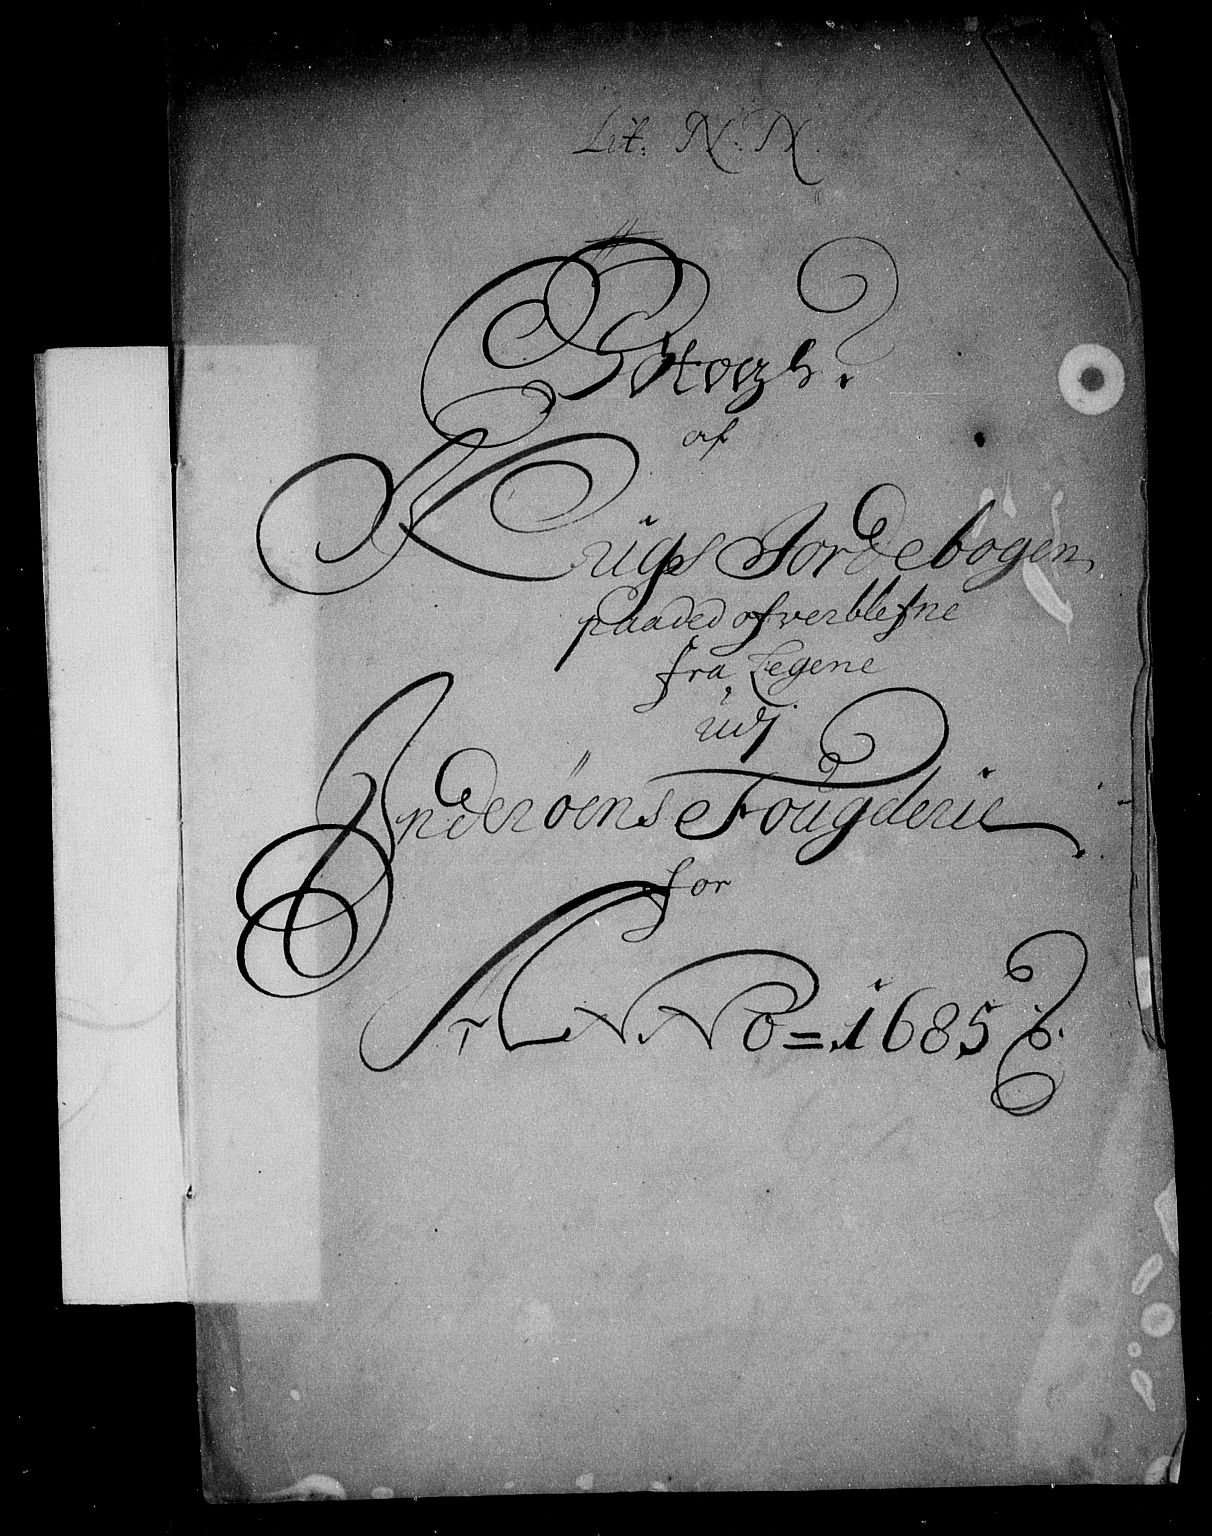 Lit: N: N.
Extract
af
Krigs Jordebogen
paa ded ofverblefne
fra Legene
udj
Inderöens Fougderie
for
ANNO = 1685